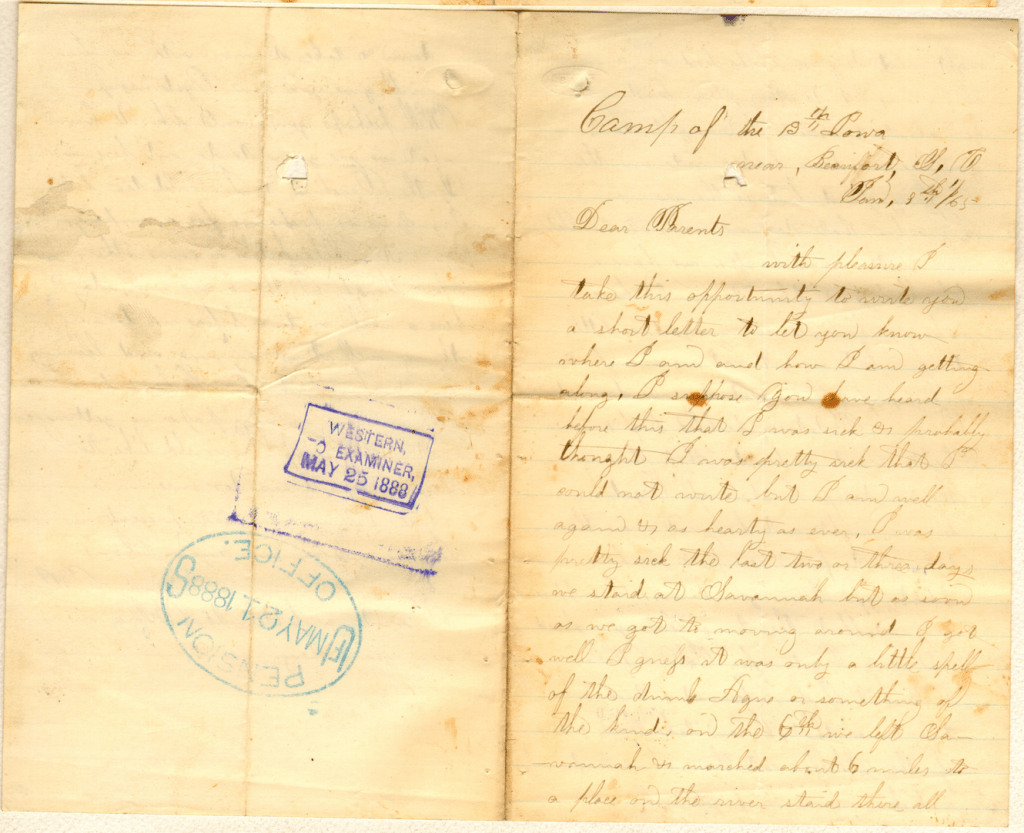 WESTERN,
EXAMINER,
MAY 25 1888
PENSION
U.S. MAY 21 1888
OFFICE.
Camp of the 13th Iowa
near, Beaufort, S, C
Jan, 9th /65
Dear Parents
with pleasure I
take this opportunity to write you
a short letter to let you know
where I am and how I am getting
along, I suppose you have heard
before this that I was sick & probably
thought I was pretty sick that I
could not write but I am well
again & as hearty as ever, I was
pretty sick the last two or three days
we staid at Savannah but as soon
as we got to moving around I got
well I guess it was only a little spell
of the dumb Ague or something of
the kind, on the 6th we left Sa-
vannah & marched about 6 miles to
a place on the river staid there all